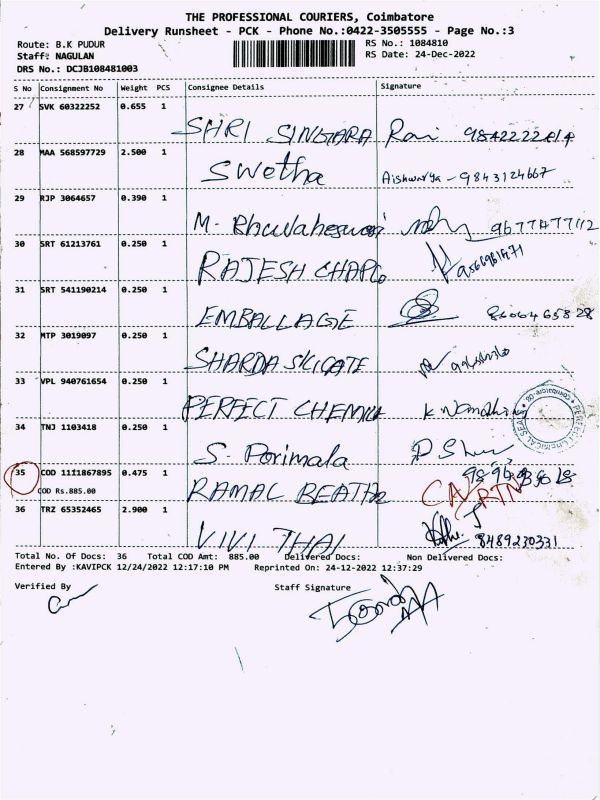 THE PROFESSIONAL COURIERS, Coimbatore
Delivery Runsheet - PCK - Phone No.:0422-3505555 - Page No.:3
Route: B.K PUDUR
RS No.: 1084810
Staff: NAGULAN
RS Date: 24-Dec-2022
DRS No.: DCJB108481003
S No Consignment No Weight PCS Consignee Details Signature
27 SVK 60322252 0.655 1
SHRI SINGARA Ravi
28 MAA 568597729 2.500 1
Swetha Aishwarya - 9843124667
29 RJP 3064657 0.390 1
M. 9677477112
30 SRT 61213761 0.250 1
RAJESH
31 SRT 541190214 0.250 1
EMBALLAGE 8606465828
32 MTP 3019097 0.250 1
SHARDA
33 VPL 940761654 0.250 1
PERFECT K
34 TNJ 1103418 0.250 1
S. Porimala
35 COD 1111867895 0.475 1
COD Rs.885.00
RAMAL RTN
36 TRZ 65352465 2.900 1
VIVI THAI 8489230331
Total No. Of Docs: 36 Total COD Amt: 885.00 Delivered Docs: Non Delivered Docs:
Entered By :KAVIPCK 12/24/2022 12:17:10 PM Reprinted On: 24-12-2022 12:37:29
Verified By Staff Signature